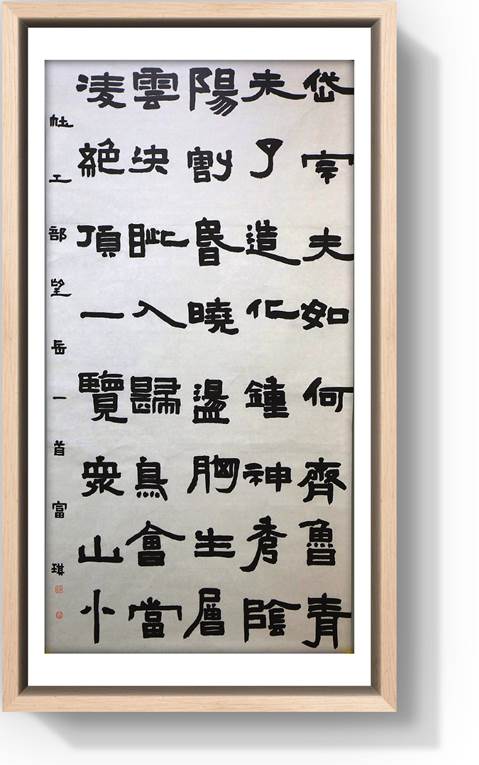 岱宗夫如何齊魯青
未了造化鍾神秀陰
陽割昏曉盪胸生層
雲決眥入歸鳥會當
凌絕頂一覽衆山小
杜工部望岳一首富琪